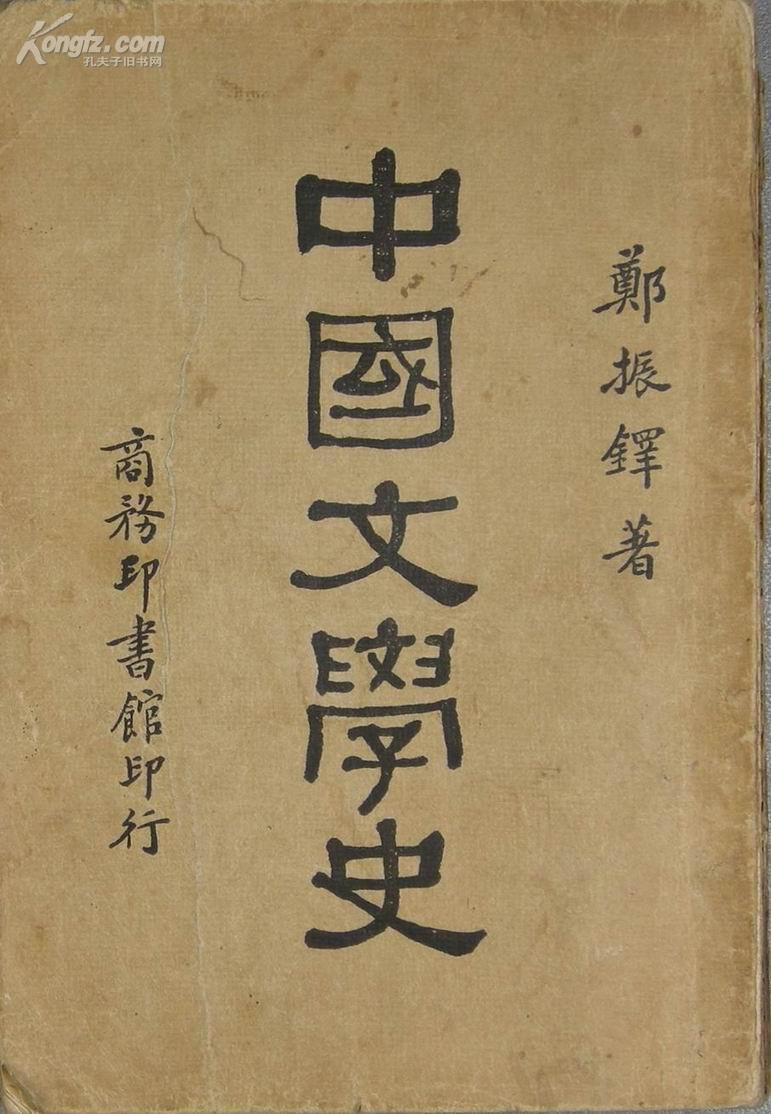 Kongfz.com
孔夫子旧书网
鄭振鐸著
中國文學史
商務印書館印行